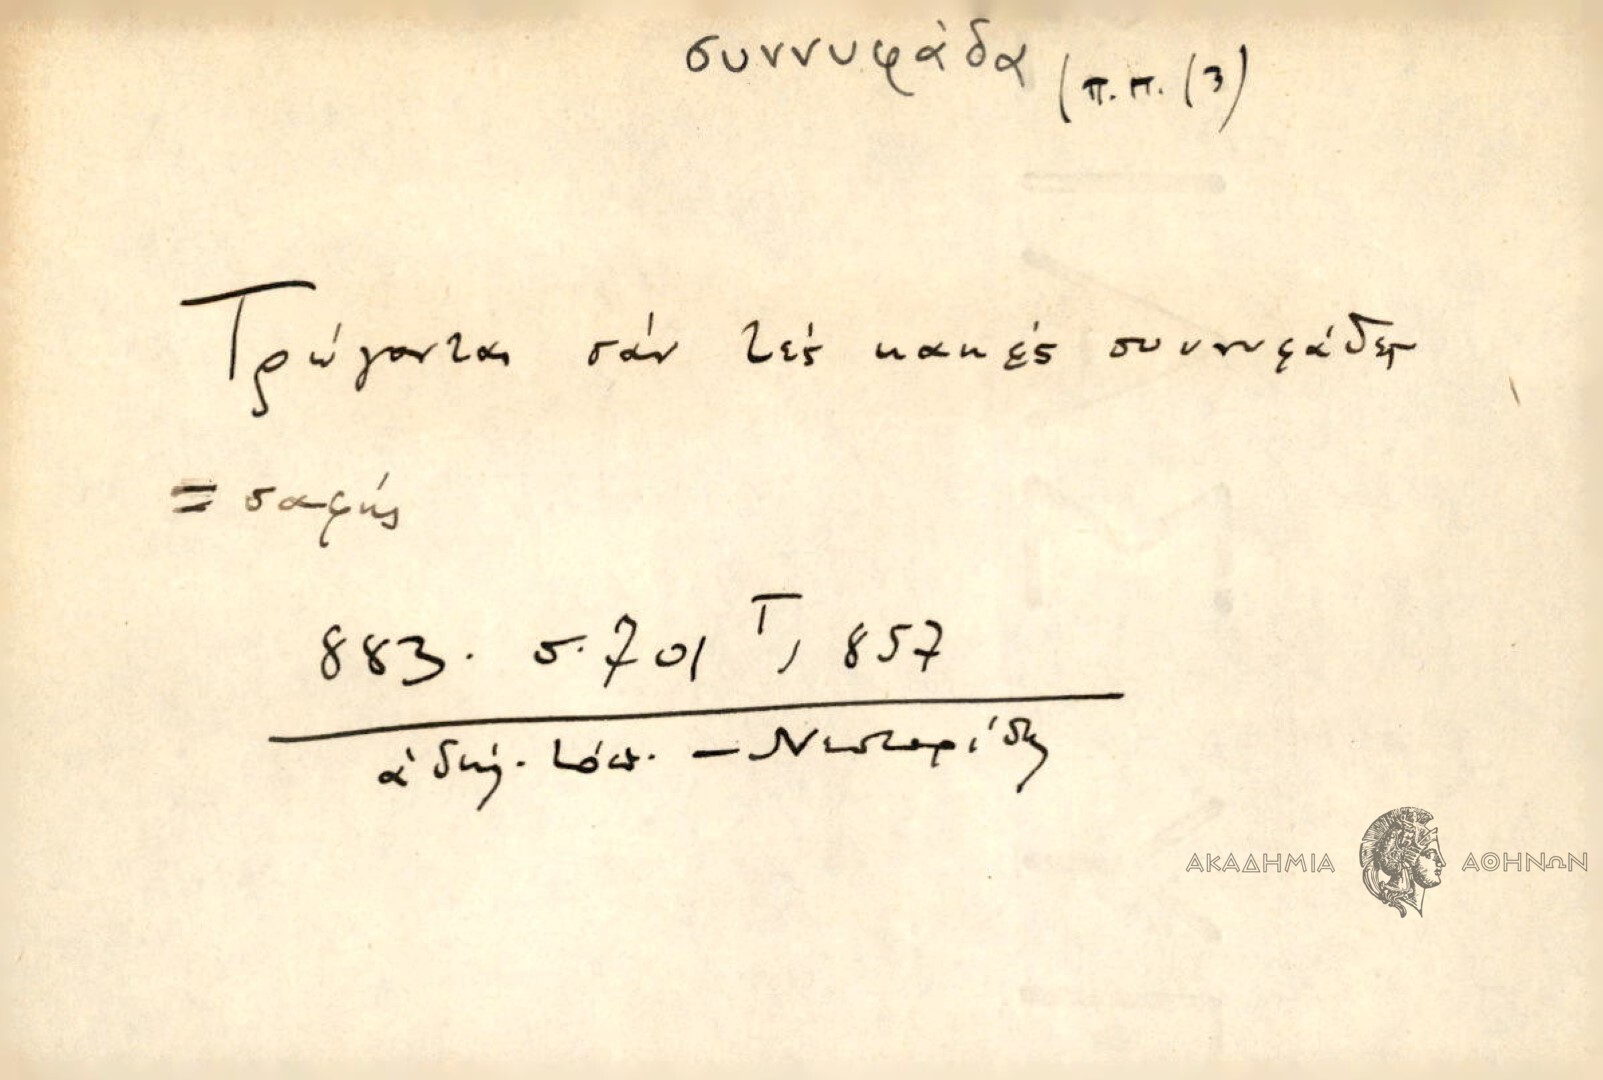 συννυφάδα (π.π. (3)
Τρώγονται σάν τές κακές συννυφάδες
= σαφής
883. σ. 701 Τ, 857
ἀδήλ. τόπ. – Νεστορίδη
ΑΚΑΔΗΜΙΑ ΑΘΗΝΩΝ